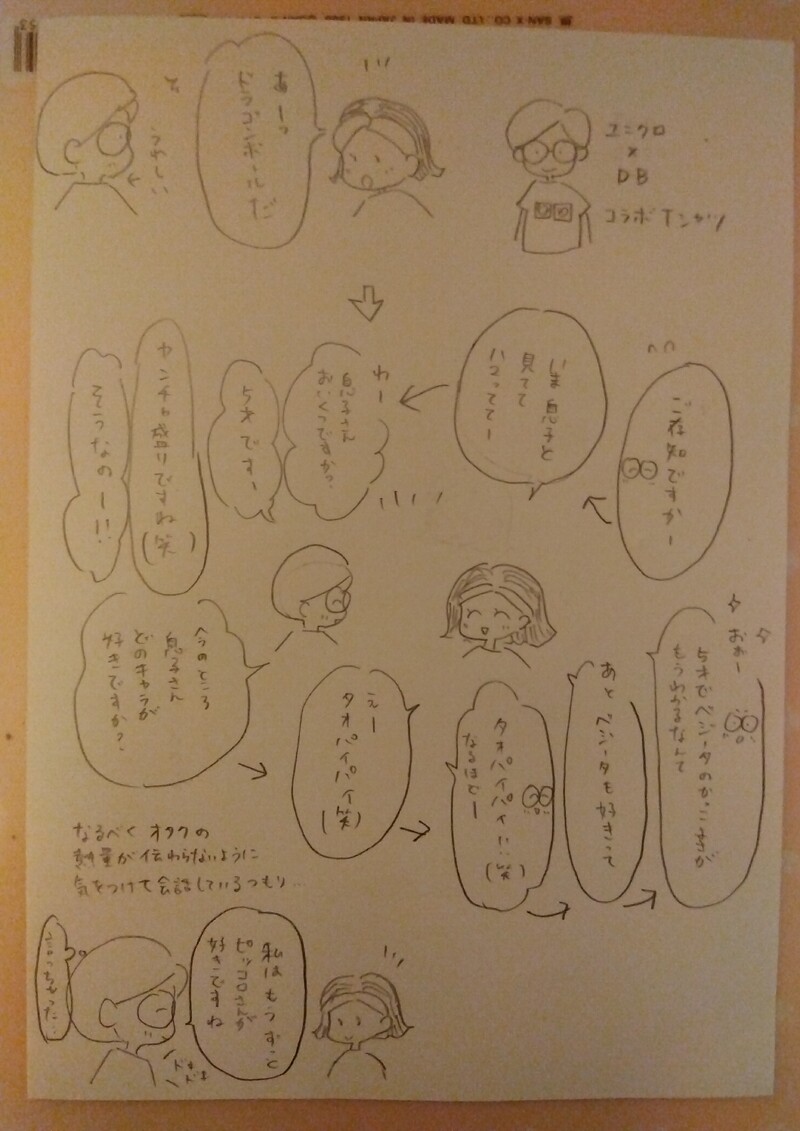 SAN X CO., LTD MADE IN JAPAN
53
ユニクロ
×
DB
コラボTシャツ
あーっ
ドラゴンボールだ
うれしい
ご存知ですかー
いま息子と
見てて
ハマっててー
わー
息子さん
おいくつですか?
5才ですー
ヤンチャ盛りですね(笑)
そうなのー!!
今のところ
息子さん
どのキャラが
好きですか?
えー
タオパイパイ
(笑)
タオパイパイ!!(笑)
なるほどー
あと ベジータも好きって
おぉー
5才でベジータのかっこよさが
もうわかるなんて
なるべく オタクの
熱量が伝わらないように
気をつけて会話しているつもり…
私は もうずっと
ピッコロさんが
好きですね
言っちゃった…
ドキドキ